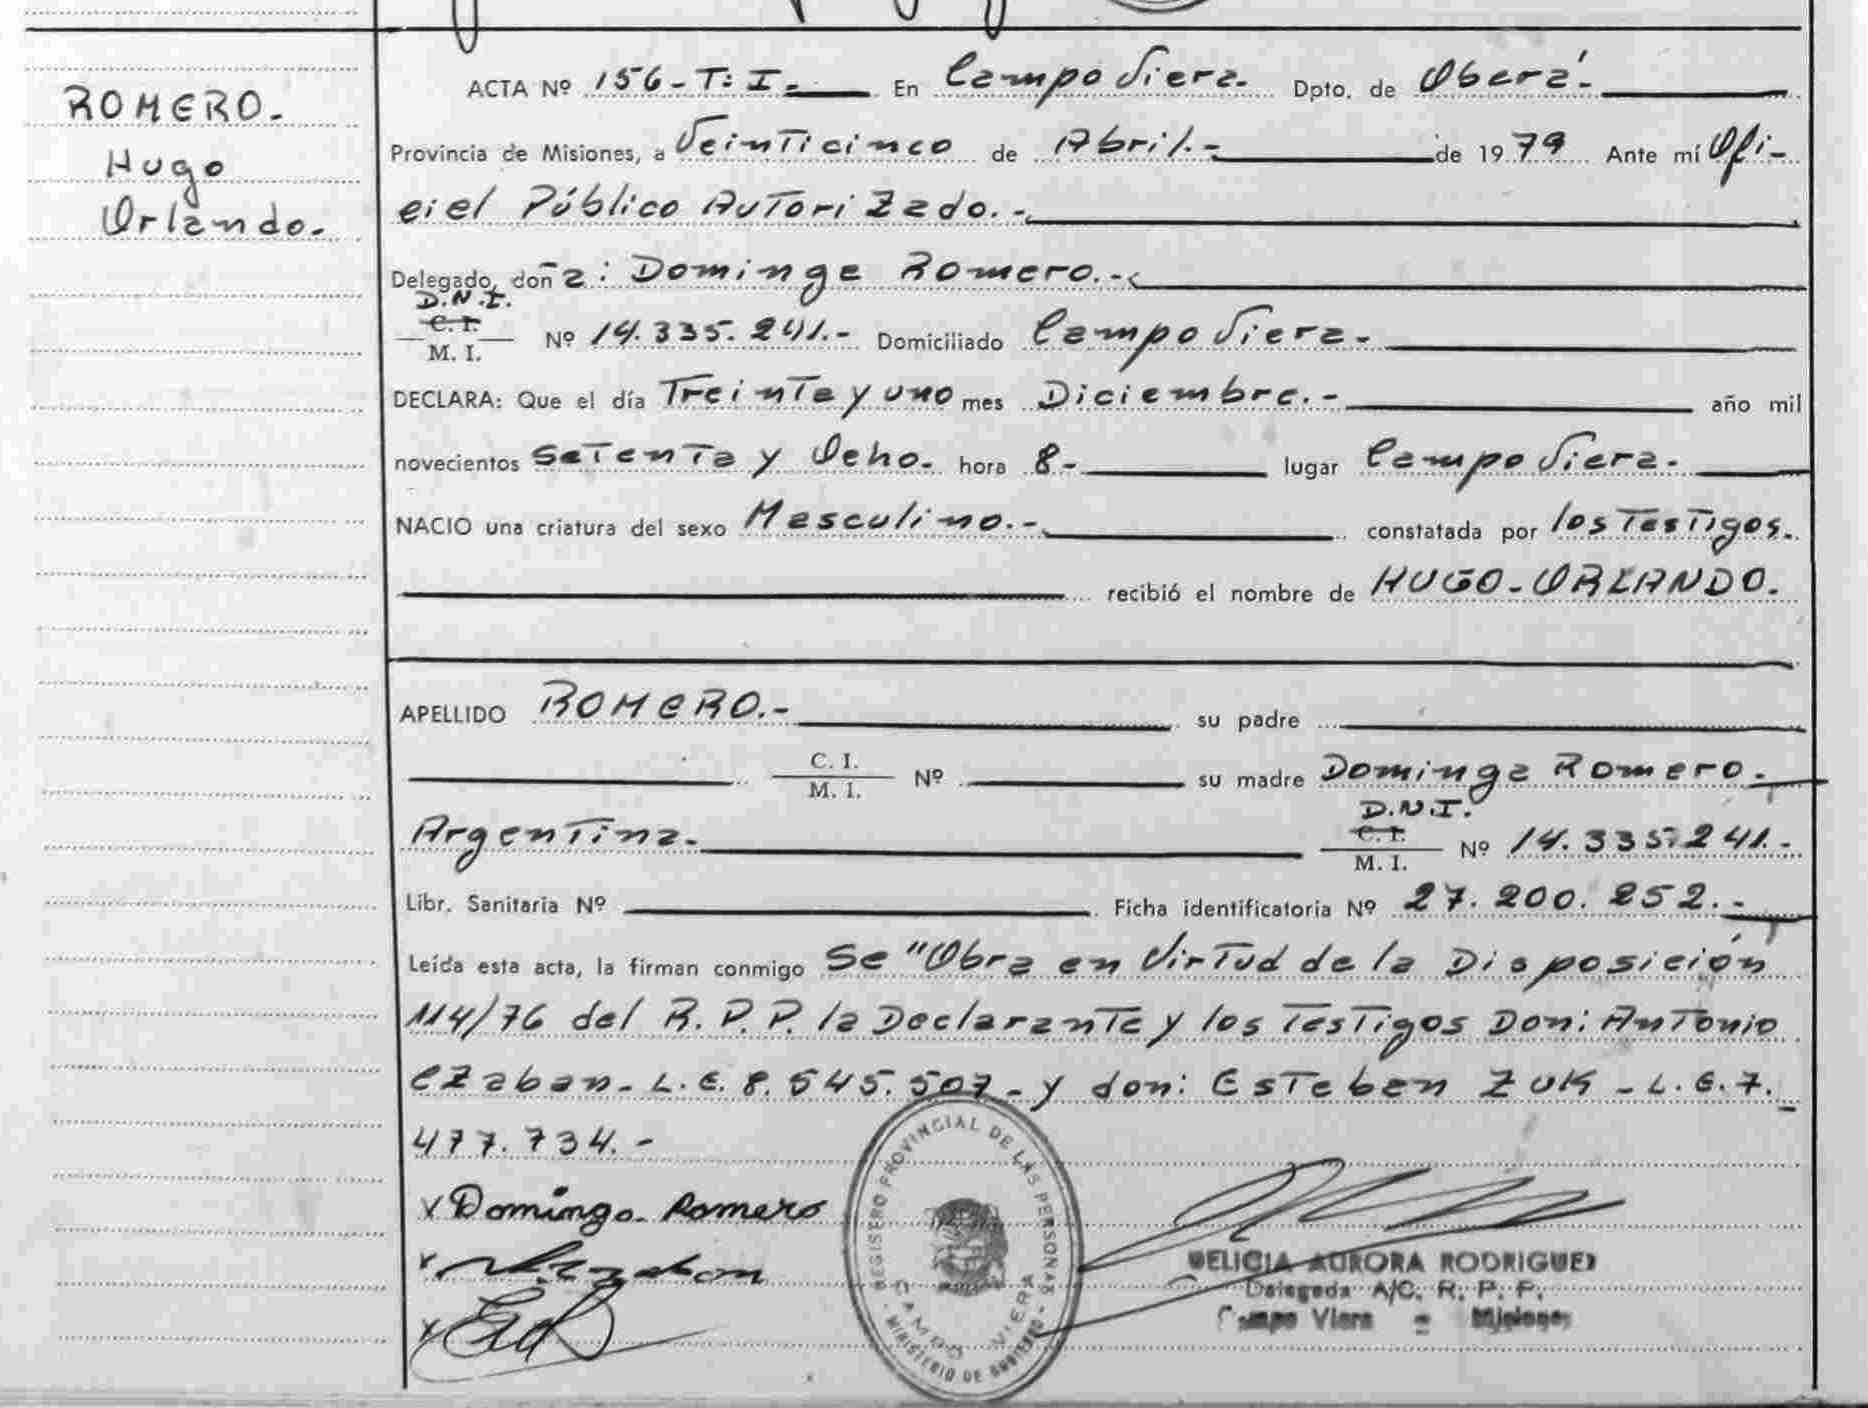 ROMERO.-
Hugo
Orlando.-
ACTA Nº 156-T: I.- En Campo Viera.- Dpto. de Oberá.-
Provincia de Misiones, a Veinticinco de Abril.- de 1979 Ante mí Ofi-
cial Público Autorizado.-
Delegado, doña: Dominga Romero.-
D.N.I.
C. I.
M. I. Nº 14.335.241.- Domiciliado Campo Viera.-
DECLARA: Que el día Treinta y uno mes Diciembre.- año mil
novecientos Setenta y Ocho.- hora 8.- lugar Campo Viera.-
NACIO una criatura del sexo Masculino.- constatada por los Testigos.-
recibió el nombre de HUGO-ORLANDO.-
APELLIDO ROMERO.- su padre
C. I.
M. I. Nº su madre Dominga Romero.-
D.N.I.
Argentina.- C. I.
M. I. Nº 14.335.241.-
Libr. Sanitaria Nº Ficha identificatoria Nº 27.200.252.-
Leída esta acta, la firman conmigo Se "Obra en Virtud de la Disposición
114/76 del R.P.P. la Declarante y los Testigos Don: Antonio
Czaban- L.E. 8.545.507- y don: Esteban ZUK - L.E. 7.
477.734.-
x Dominga Romero
REGISTRO PROVINCIAL DE LAS PERSONAS
CAMPO VIERA
- MINISTERIO DE GOBIERNO -
DELICIA AURORA RODRIGUEZ
Delegada A/C. R. P. P.
Campo Viera - Misiones